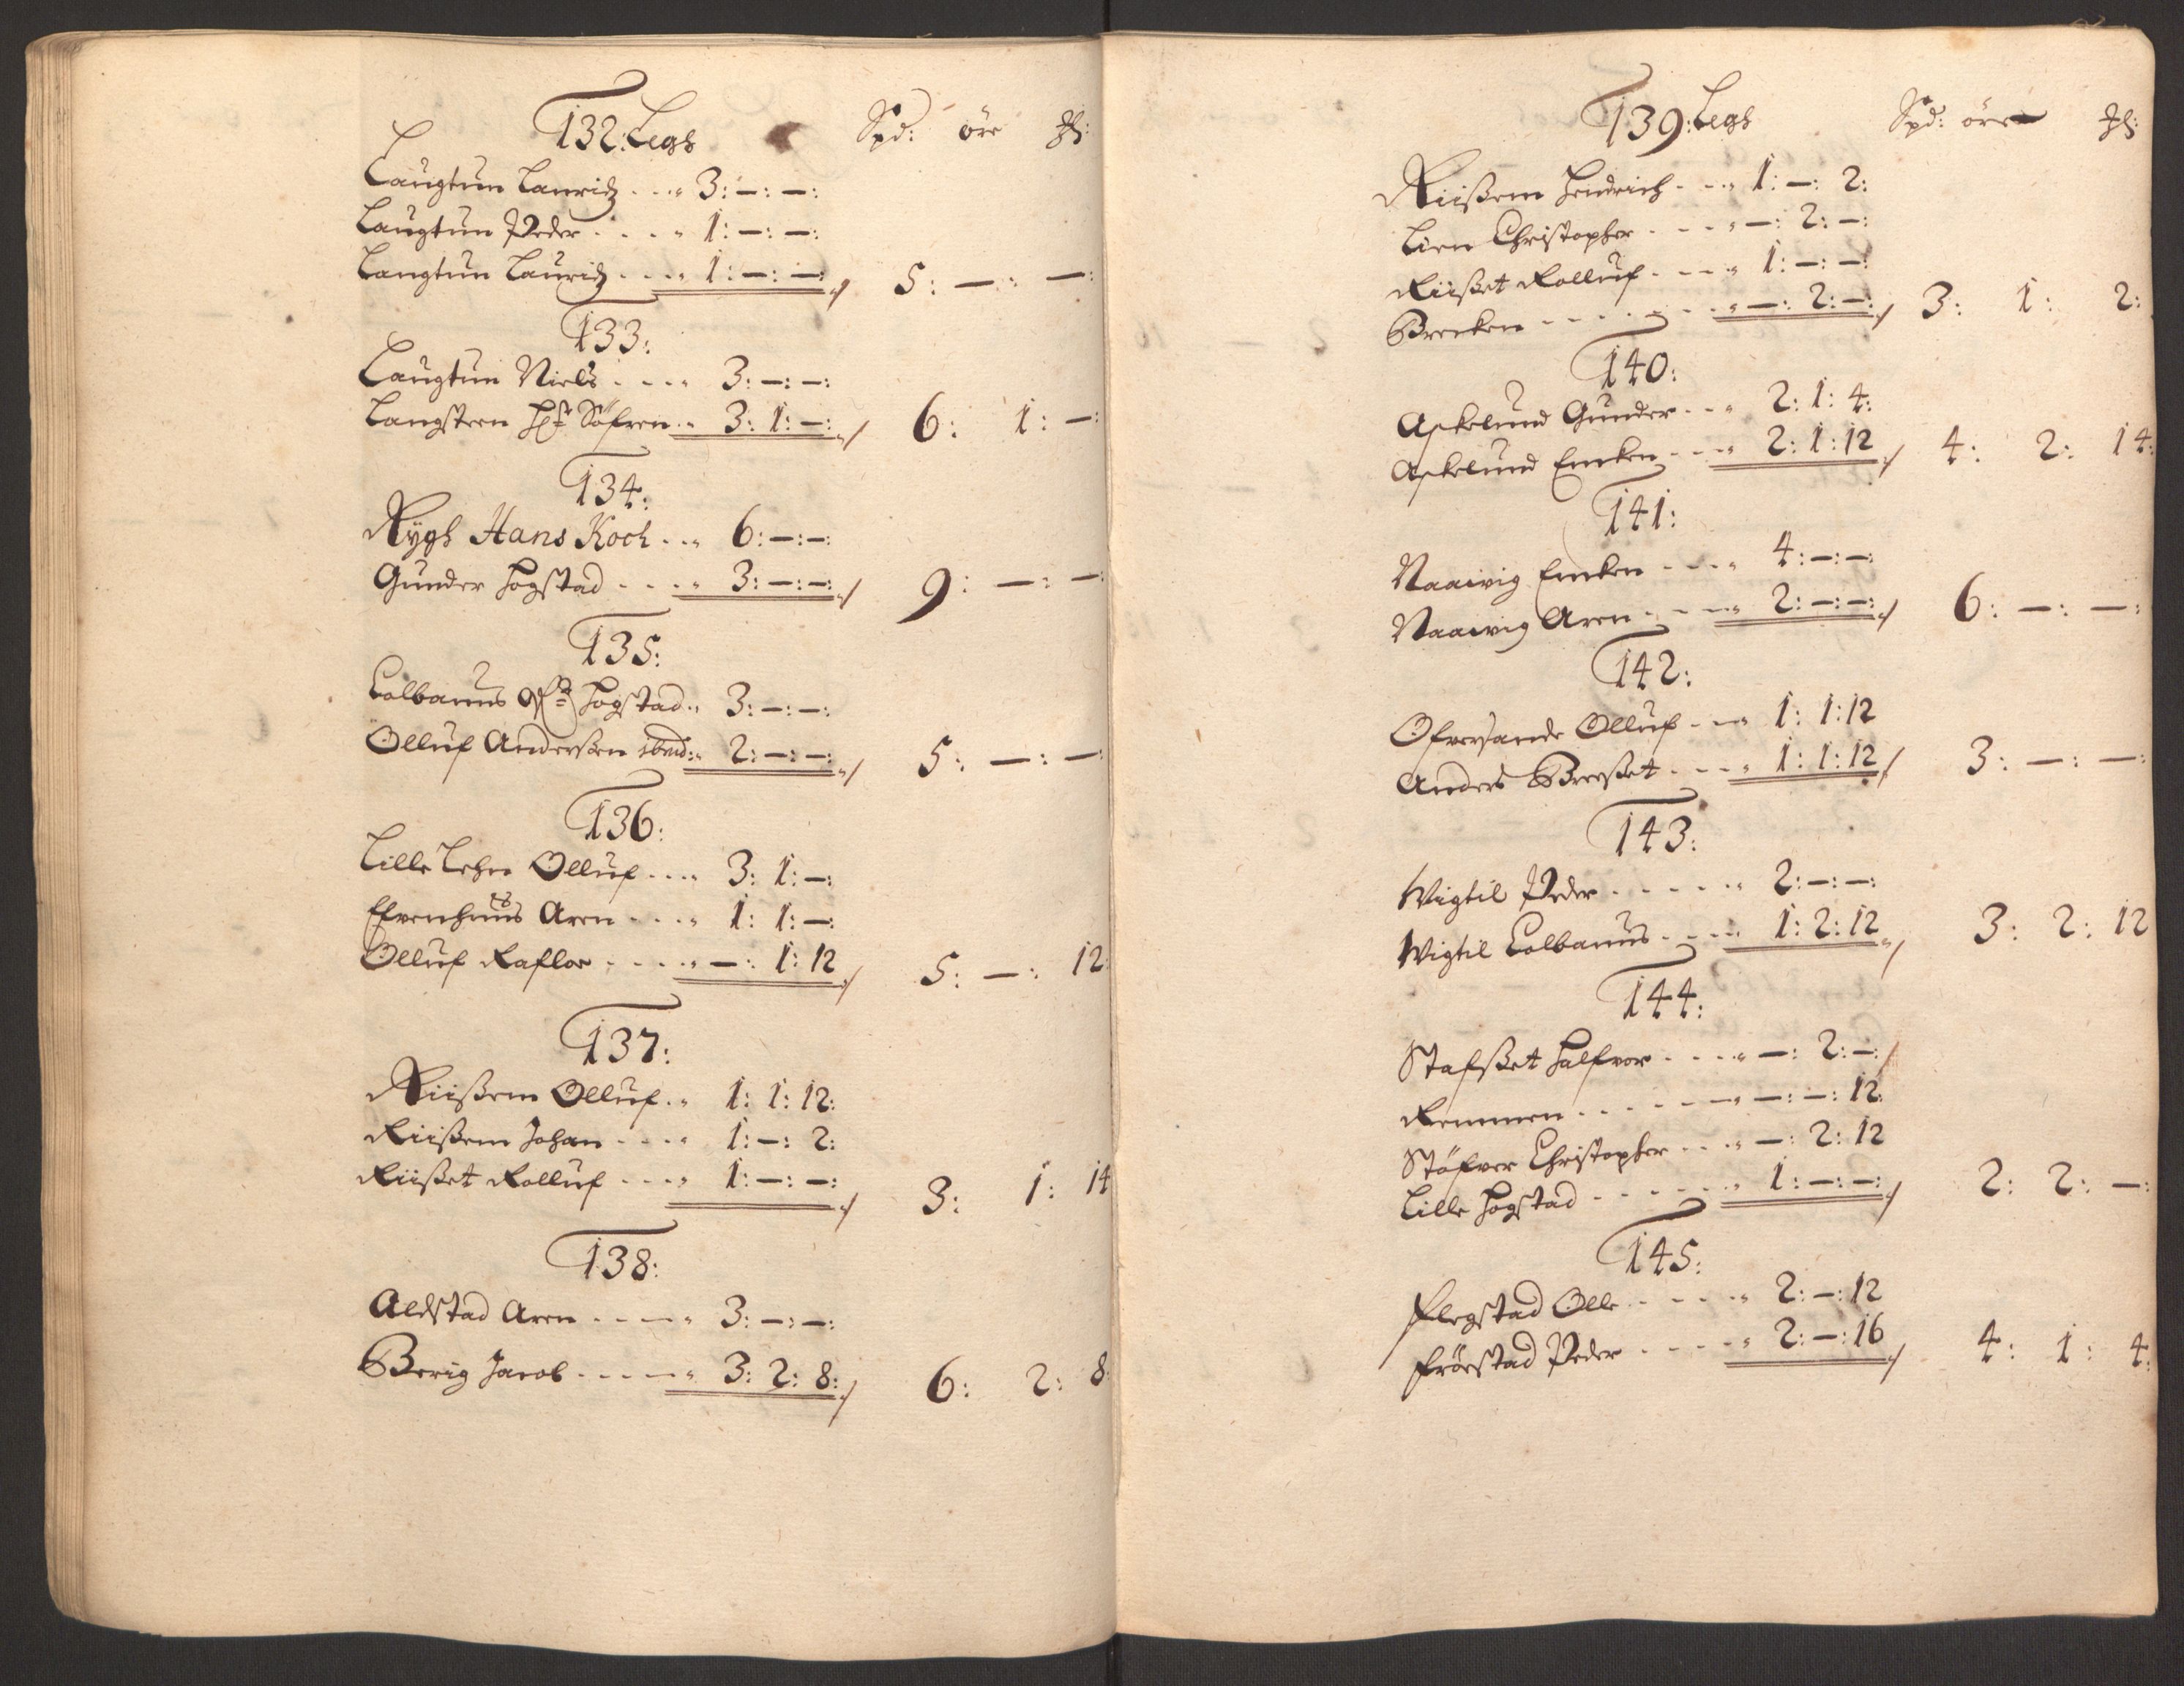 132: Legs Spd: öre
Laugtun Lauridz 3: —: —:
Laugtun Peder 1: —: —:
Laugtun Lauridz 1: —: —: 5: —: —:
133:
Laugtun Niels 3: —: —:
Langsteen Söfren 3: 1: —: 6: 1: —:
134:
Rygh Hans Koch 6: —: —:
Gunder Hogstad 3: —: —: 9: —: —:
135:
Colbanus Hogstad 3: —: —:
Olluf Anderßen ibnd: 2: —: —: 5: —: —:
136:
Lille Lehn Olluf 3: 1: —:
Efvenhuus Aren 1: 1: —:
Olluf Raflos —: 1: 12 5: —: 12:
137:
Riißem Olluf 1: 1: 12:
Riißem Johan 1: —: 2:
Riißet Rolluf 1: —: —: 3: 1: 14
138:
Aldstad Aren 3: —: —:
Berig Jacob 3: 2: 8: 6: 2: 8:
139: Legs Spd: öre
Riißem Hendrich 1: —: 2:
Lien Christopher —: 2: —:
Riißet Rolluf 1: —: —:
Brecken —: 2: —: 3: 1: 2:
140:
Askelund Gunder 2: 1: 4:
Askelund Encken 2: 1: 12 4: 2: 14:
141:
Naavig Encken 4: —: —:
Naavig Aren 2: —: —: 6: —: —:
142:
Ofversande Olluf 1: 1: 12
Anders Breßet 1: 1: 12 3: —: —:
143:
Wigtil Peder 2: —: —:
Wigtil Colbanus 1: 2: 12 3: 2: 12
144:
Stafßet Halfvor —: 2: —:
Remmen —: —: 12:
Stöfver Christopher —: 2: 12
Lille Hogstad 1: —: —: 2: 2: —:
145:
Flegstad Olle 2: —: 12
Fröestad Peder 2: —: 16 4: 1: 4: